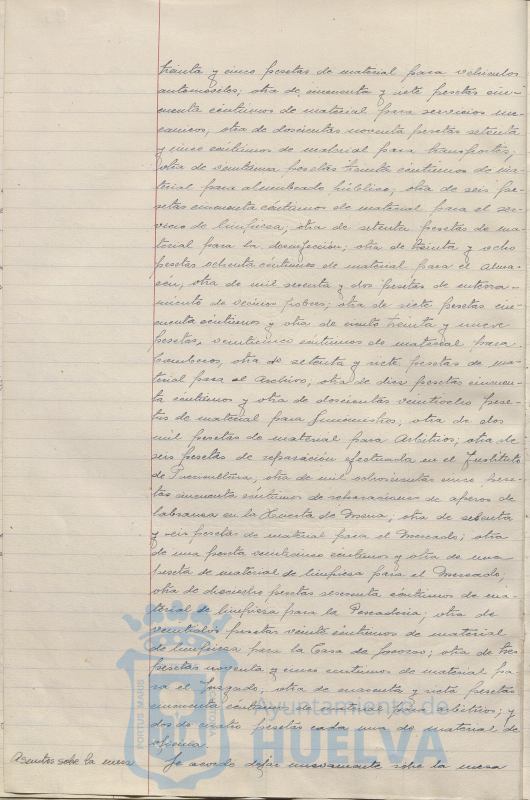 treinta y cinco pesetas de material para vehiculos
automoviles; otra de cincuenta y siete pesetas cin-
cuenta céntimos de material para servicios me-
canicos, otra de doscientas noventa pesetas setenta
y cinco céntimos de material para transportes;
otra de veintiuna pesetas treinta céntimos de ma-
terial para alumbrado público; otra de seis pe-
setas cincuenta céntimos de material para el ser-
vicio de limpieza; otra de setenta pesetas de ma-
terial para la desinfección; otra de treinta y ocho
pesetas ochenta céntimos de material para el Alma-
cén; otra de mil sesenta y dos pesetas de enterra-
miento de vecinos pobres; otra de siete pesetas cin-
cuenta céntimos y otra de ciento treinta y nueve
pesetas, veinticinco céntimos de material para
Bomberos, otra de setenta y siete pesetas de ma-
terial para el Archivo, otra de diez pesetas cincuen-
ta céntimos y otra de doscientas veintiocho pese-
tas de material para Suministros, otra de dos
mil pesetas de material para Arbitrios; otra de
seis pesetas de reparación efectuada en el Instituto
de Puericultura, otra de mil ochocientas once pese-
tas cincuenta céntimos de reparaciones de aperos de
labranza en la Huerta de Mena, otra de setenta
y seis pesetas de material para el Mercado; otra
de una peseta veinticinco céntimos y otra de una
peseta de material de limpieza para el Mercado,
otra de pesetas sesenta céntimos de ma-
terial de limpieza para la Pescaderia; otra de
veintidós pesetas veinte céntimos de material
de limpieza para la Casa de Socorro; otra de tres
pesetas noventa y cinco céntimos de material pa-
ra el Juzgado, otra de y siete pesetas
cincuenta céntimos de material para; y
dos de cuatro pesetas cada una de material de
oficina.
Asuntos sobre la mesa Se acordó dejar nuevamente sobre la mesa
PORTUS MARIS
Ayuntamiento de
HUELVA